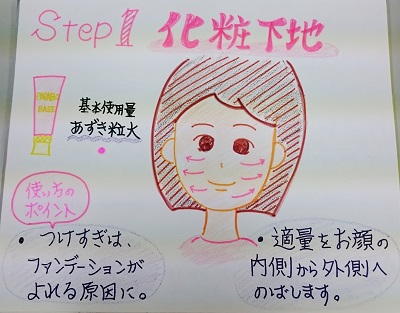 Step1 化粧下地
BASE
基本使用量
あずき粒大
使い方の
ポイント
・つけすぎは、
ファンデーションが
よれる原因に。
・適量をお顔の
内側から外側へ
のばします。